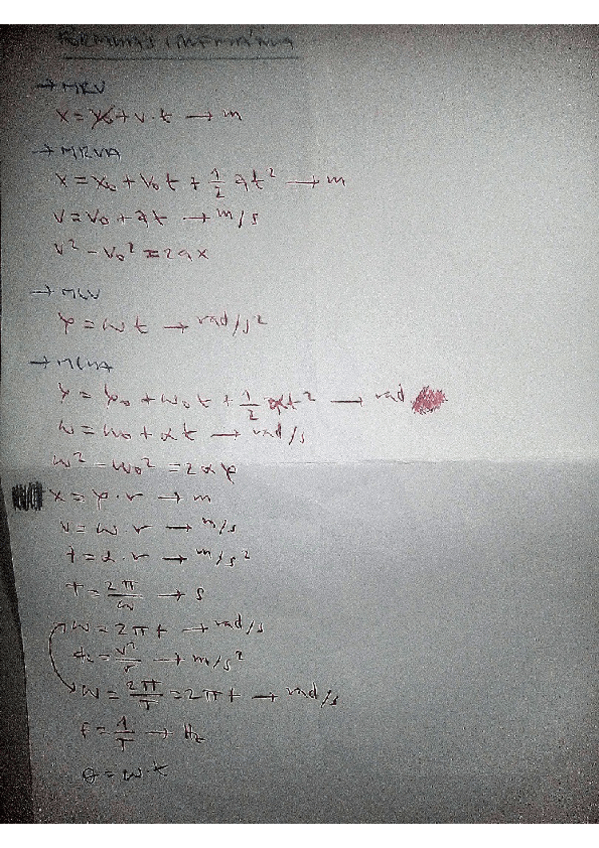 FÓRMULAS CINEMÁTICA
→ MRU
x = x₀ + v · t → m
→ MRUA
x = x₀ + v₀ t + 1/2 at² → m
v = v₀ + at → m/s
v² - v₀² = 2ax
→ MCU
φ = ω t → rad/s²
→ MCUA
φ = φ₀ + ω₀ t + 1/2 αt² → rad
ω = ω₀ + αt → rad/s
ω² - ω₀² = 2αφ
x = φ · r → m
v = ω · r → m/s
t = α · r → m/s²
T = 2π/ω → s
ω = 2πf → rad/s
ac = v²/r → m/s²
ω = 2π/T = 2πf → rad/s
f = 1/T → Hz
θ = ω · t